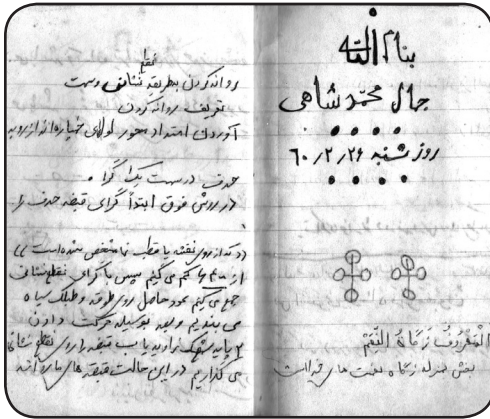 بنام الله
جمال محمد شاهی
روز شنبه ۶۰/۲/۲۶
المعروف زکاة النعم
بخش منزله زکاة نعمت های خداست
نقطه
روانه کردن بطریقه نشانی وسمت
تعریف روانه کردن
آوردن امتداد محور لوله‌ی خمپاره انداز روبه
هدف درست یک گرا
در روش فوق ابتدأ گرای قبضه هدف را
(که از روی نقشه یا قطب نما مشخص شده است)
از ۶۴۰۰ کم می کنیم سپس با گرای نقطه نشانی
جمع می کنیم عدد حاصل روی طوقه و طبلک سیاه
می بندیم و بعد بوسیله حرکت دادن
۲ پایه زاویه یاب قبضه را روی نقطه نشانی
می گذاریم در این حالت قبضه های ما روانه